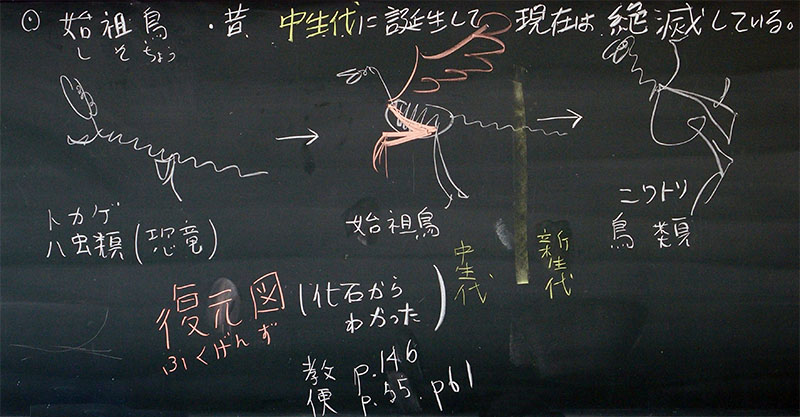 ⊙ 始祖鳥 ・昔 中生代に誕生して、現在は絶滅している。
しそちょう
トカゲ
ハ虫類(恐竜)
始祖鳥
ニワトリ
鳥類
中生代
新生代
復元図(化石から
わかった)
ふくげんず
教 p.146
便 p.55. p61